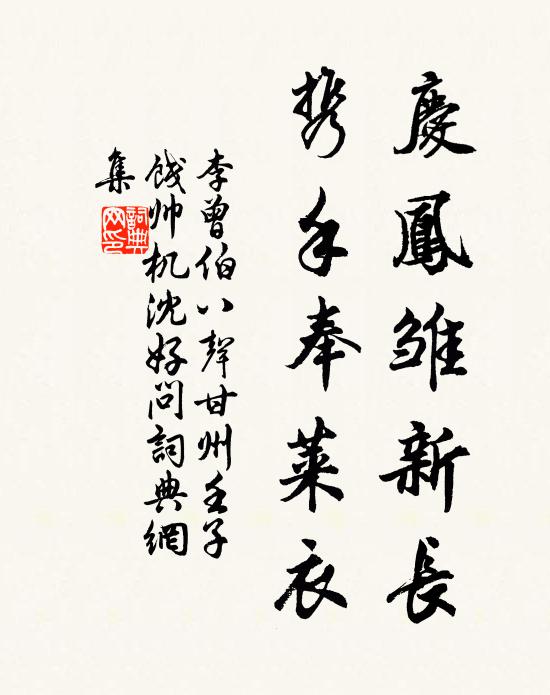 慶鳳雛新長
携手奉萊衣
李曾伯八聲甘州壬子
餞帅机沈好問詞典網
集
詞典网印